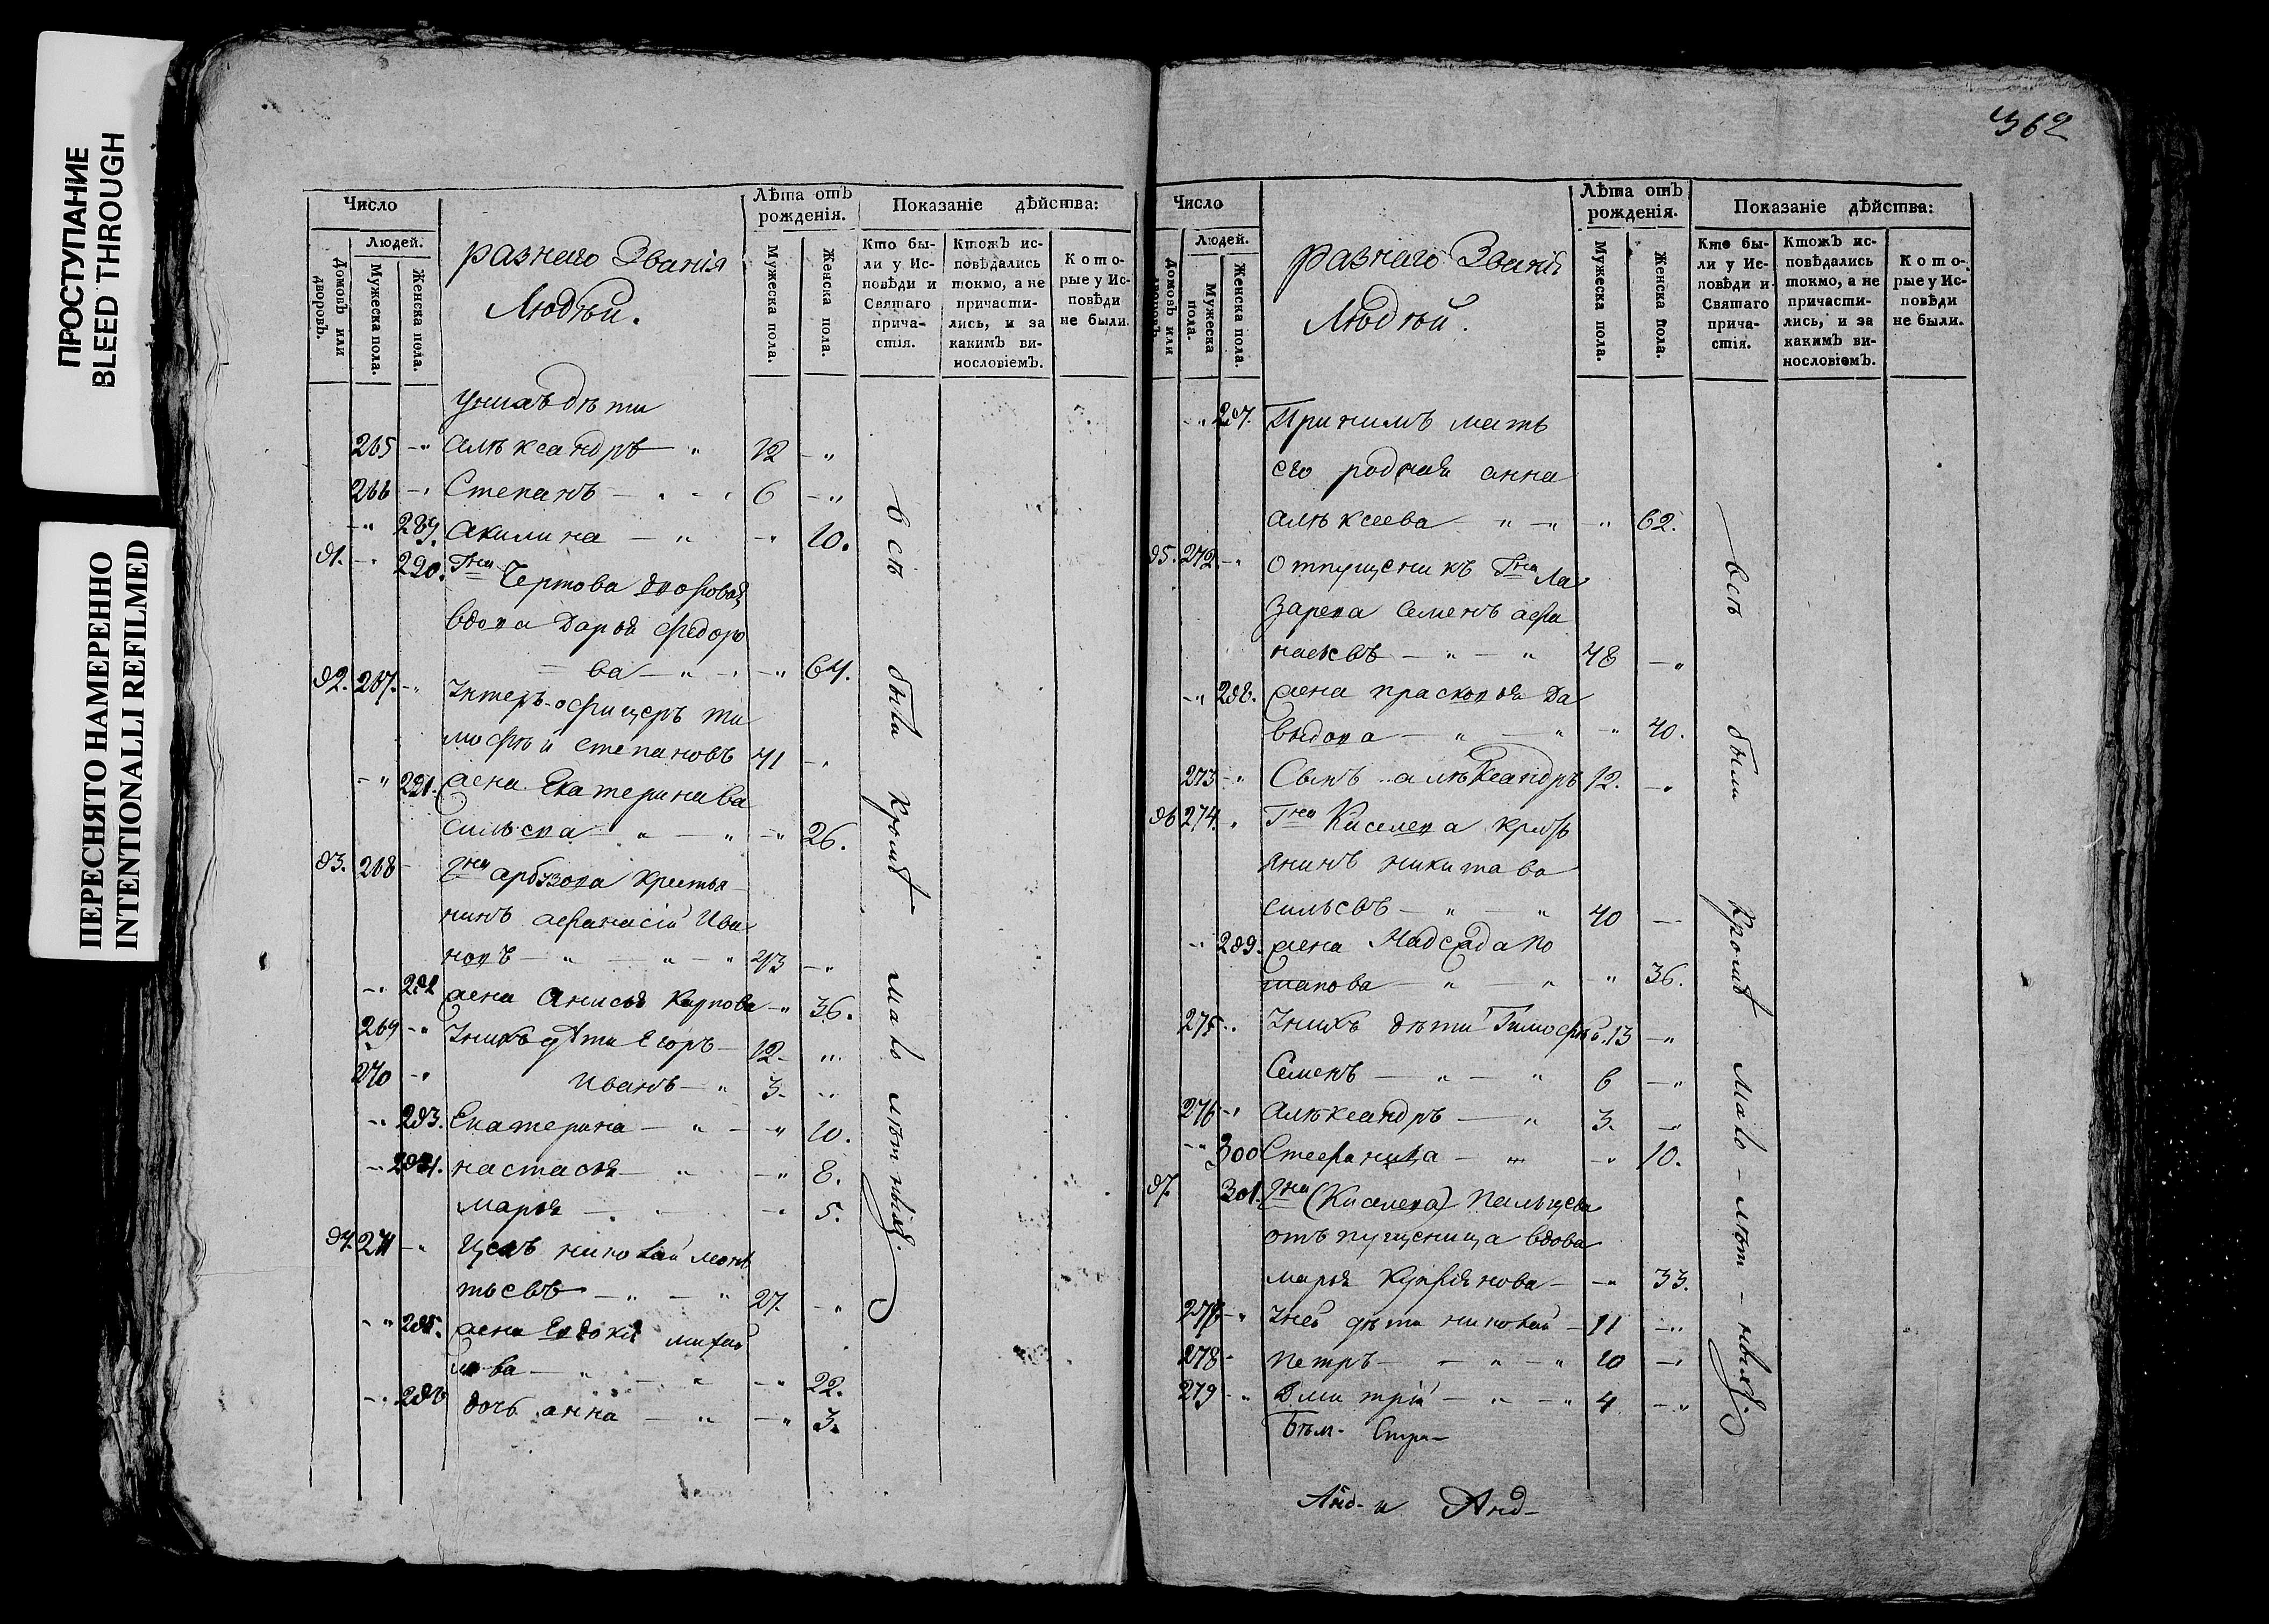 ПРОСТУПАНИЕ
BLEED THROUGH
ПЕРЕСНЯТО НАМЕРЕННО
INTENTIONALLI REFILMED
Число
Людей.
Домовъ или дворовъ.
Мужеска пола.
Женска пола.
разнаго Званія
Людѣй.
Лѣта отъ рожденія.
Мужеска пола.
Женска пола.
Показаніе дѣйства:
Кто бы-
ли у Ис-
повѣди и
Святаго
прича-
стія.
Ктожъ ис-
повѣдались
токмо, а не
причасти-
лись, и за
какимъ ви-
нословіемъ.
Кото-
рые у Ис-
повѣди
не были.
унихъ дѣти
265 Алѣксандръ 12
266 Степанъ 6
289. Акилина 10.
91. 290. Гна Чертова дворовая
вдова Дарья Федоро
ва 64.
92. 267. Унтеръ-офицеръ ти
мофѣй степановъ 41
291. жена Екатерина ва
сильева 26.
93. 268 Гна арбузова крестья
нинъ афанасій Ива
новъ 43
292 жена Анисья Карпова 36.
269 Унихъ дѣти Егоръ 12
270 Иванъ 3.
293. Екатерина 10.
294. настасья 8.
марья 5.
94. 271 Цехъ николай леонъ
тьевъ 27.
295. жена Евдокія михай
лова 22.
296 дочь анна 3.
всѣ были кромѣ малолѣтныхъ.
362
Число
Людей.
Домовъ или дворовъ.
Мужеска пола.
Женска пола.
разнаго Званія
Людѣй.
Лѣта отъ рожденія.
Мужеска пола.
Женска пола.
Показаніе дѣйства:
Кто бы-
ли у Ис-
повѣди и
Святаго
прича-
стія.
Ктожъ ис-
повѣдались
токмо, а не
причасти-
лись, и за
какимъ ви-
нословіемъ.
Кото-
рые у Ис-
повѣди
не были.
297. Принимъ мать
его родная анна
алѣксеева 62.
95. 272. Отпущеникъ Гна Ла
зарева Семенъ афа
насьевъ 48
298. жена прасковья Да
выдова 40.
273 Сынъ алѣксандръ 12.
96 274. Гна Киселева кресть
янинъ никита ва
сильевъ 40
299. жена Надежда по
тапова 36.
275 Унихъ дѣти Тимофѣй 13
Семенъ 6
276 Алѣксандръ 3.
300 Стефанида 10.
97. 301. Гна (Киселева) Пальцева
отъпущеница вдова
марья Купріянова 33.
277. Уней дѣти николай 11
278 петръ 10
279 Дмитрій 4
всѣ были кромѣ мало-лѣт-ныхъ.